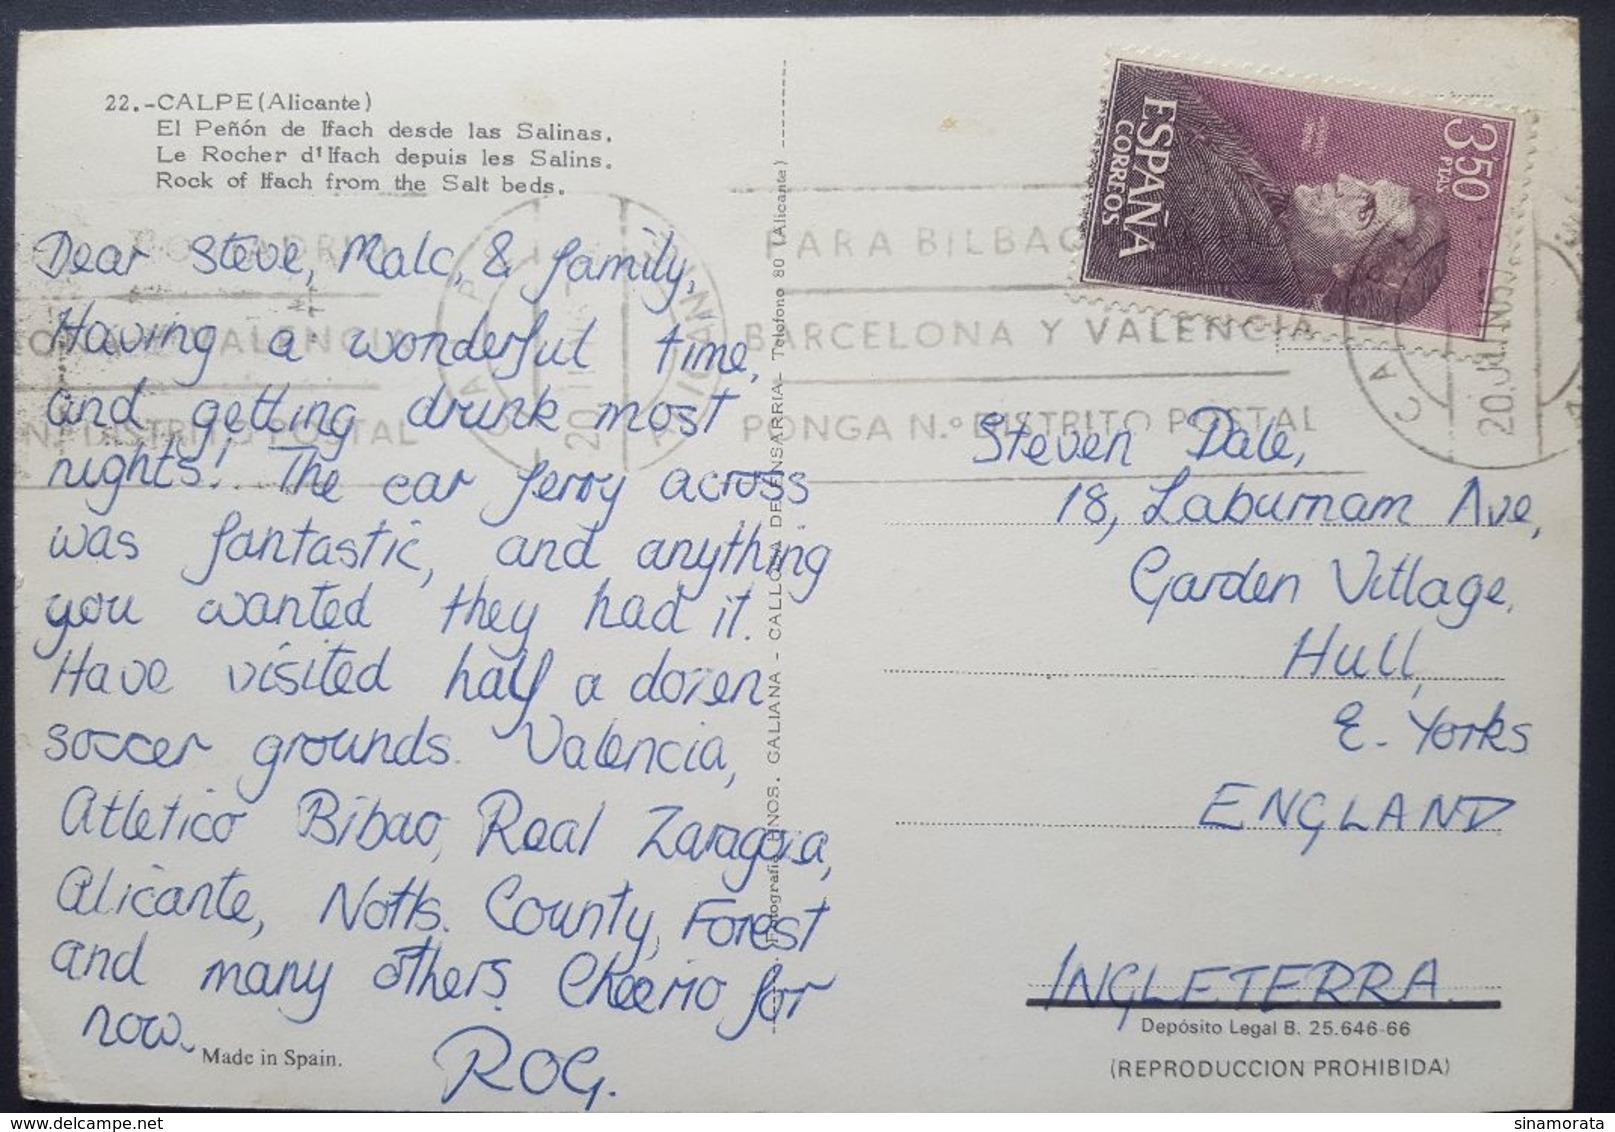 22.-CALPE (Alicante)
El Peñón de Ifach desde las Salinas.
Le Rocher d'Ifach depuis les Salins.
Rock of Ifach from the Salt beds.
Dear Steve, Malc, & family,
Having a wonderful time,
and getting drunk most
nights! The car ferry across
was fantastic, and anything
you wanted they had it.
Have visited half a dozen
soccer grounds. Valencia,
Atletico Bibao, Real Zaragoza,
Alicante, Notts. County, Forest
and many others. Cheerio for
now.
ROG.
Made in Spain.
Fotografía HNOS. GALIANA - CALLOSA DE ENSARRIA - Telefono 80 (Alicante)
ESPAÑA
CORREOS
3'50
PTAS
PARA BILBAO
BARCELONA Y VALENCIA
PONGA N.º DISTRITO POSTAL
VALENCIA
DISTRITO POSTAL
20.JUN
Steven Dale,
18, Laburnam Ave,
Garden Village,
Hull,
E. Yorks
ENGLAND
INGLETERRA.
Depósito Legal B. 25.646-66
(REPRODUCCION PROHIBIDA)
sinamorata